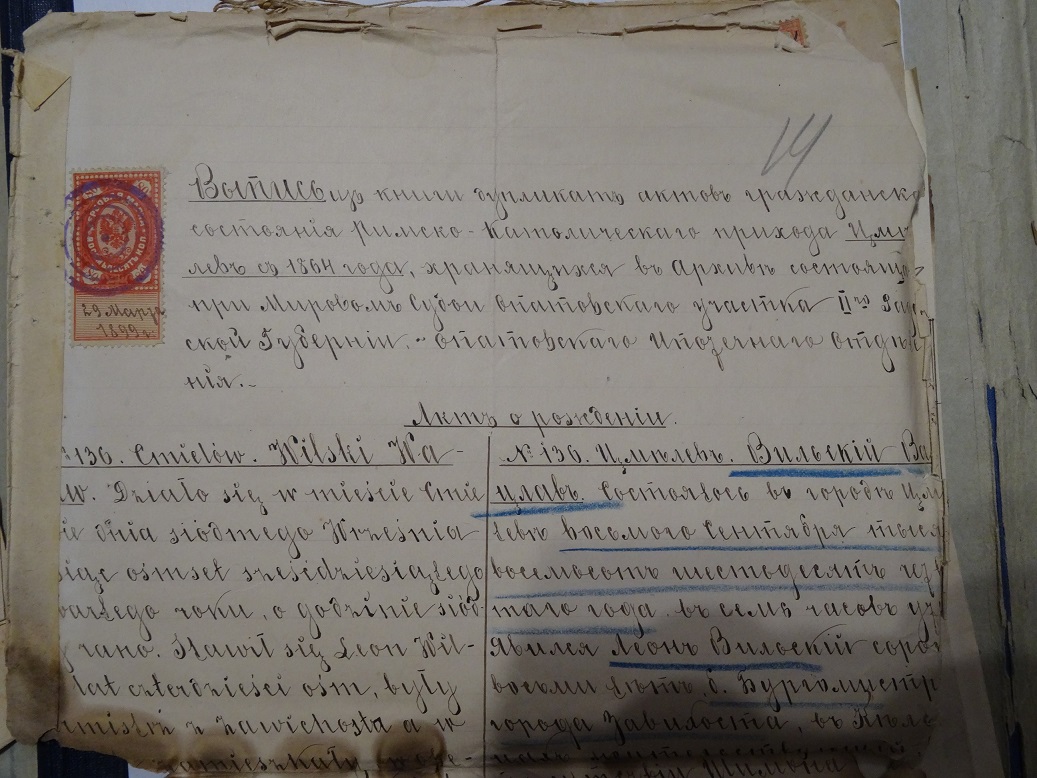 14
29 Марта
1899 г.
Выпись изъ книги дупликатъ актовъ гражданско
состоянія Римско-Католическаго прихода Цмѣ
левъ съ 1864 года, хранящихся въ Архивѣ состояще
при Мировомъ Судьи Опатовскаго участка IIго Радо
ской Губерніи.- Опатовскаго Ипотечнаго отдѣле
нія.-
Актъ о рожденіи.
136. Cmielów. Wilski Wa-
aw. Działo się w mieście Cmie
ie dnia siódmego Września
siąc ośmset sześdziesiątego
wartego roku, o godzinie siód-
rano. Stawił się Leon Wil-
lat czterdzieści ośm, były
rmistrz z Zawichosta a w
zamieszkały
№ 136. Цмѣлевъ. Вильскій Ва
цлавъ. Состоялось въ городѣ Цмѣ
левѣ восьмого Сентября тыся
восемьсотъ шестьдесятъ чет
таго года въ семь часовъ ут
явился Леонъ Вильскій соро
восьми лѣтъ, б. Бургомистр
города Завихоста, въ